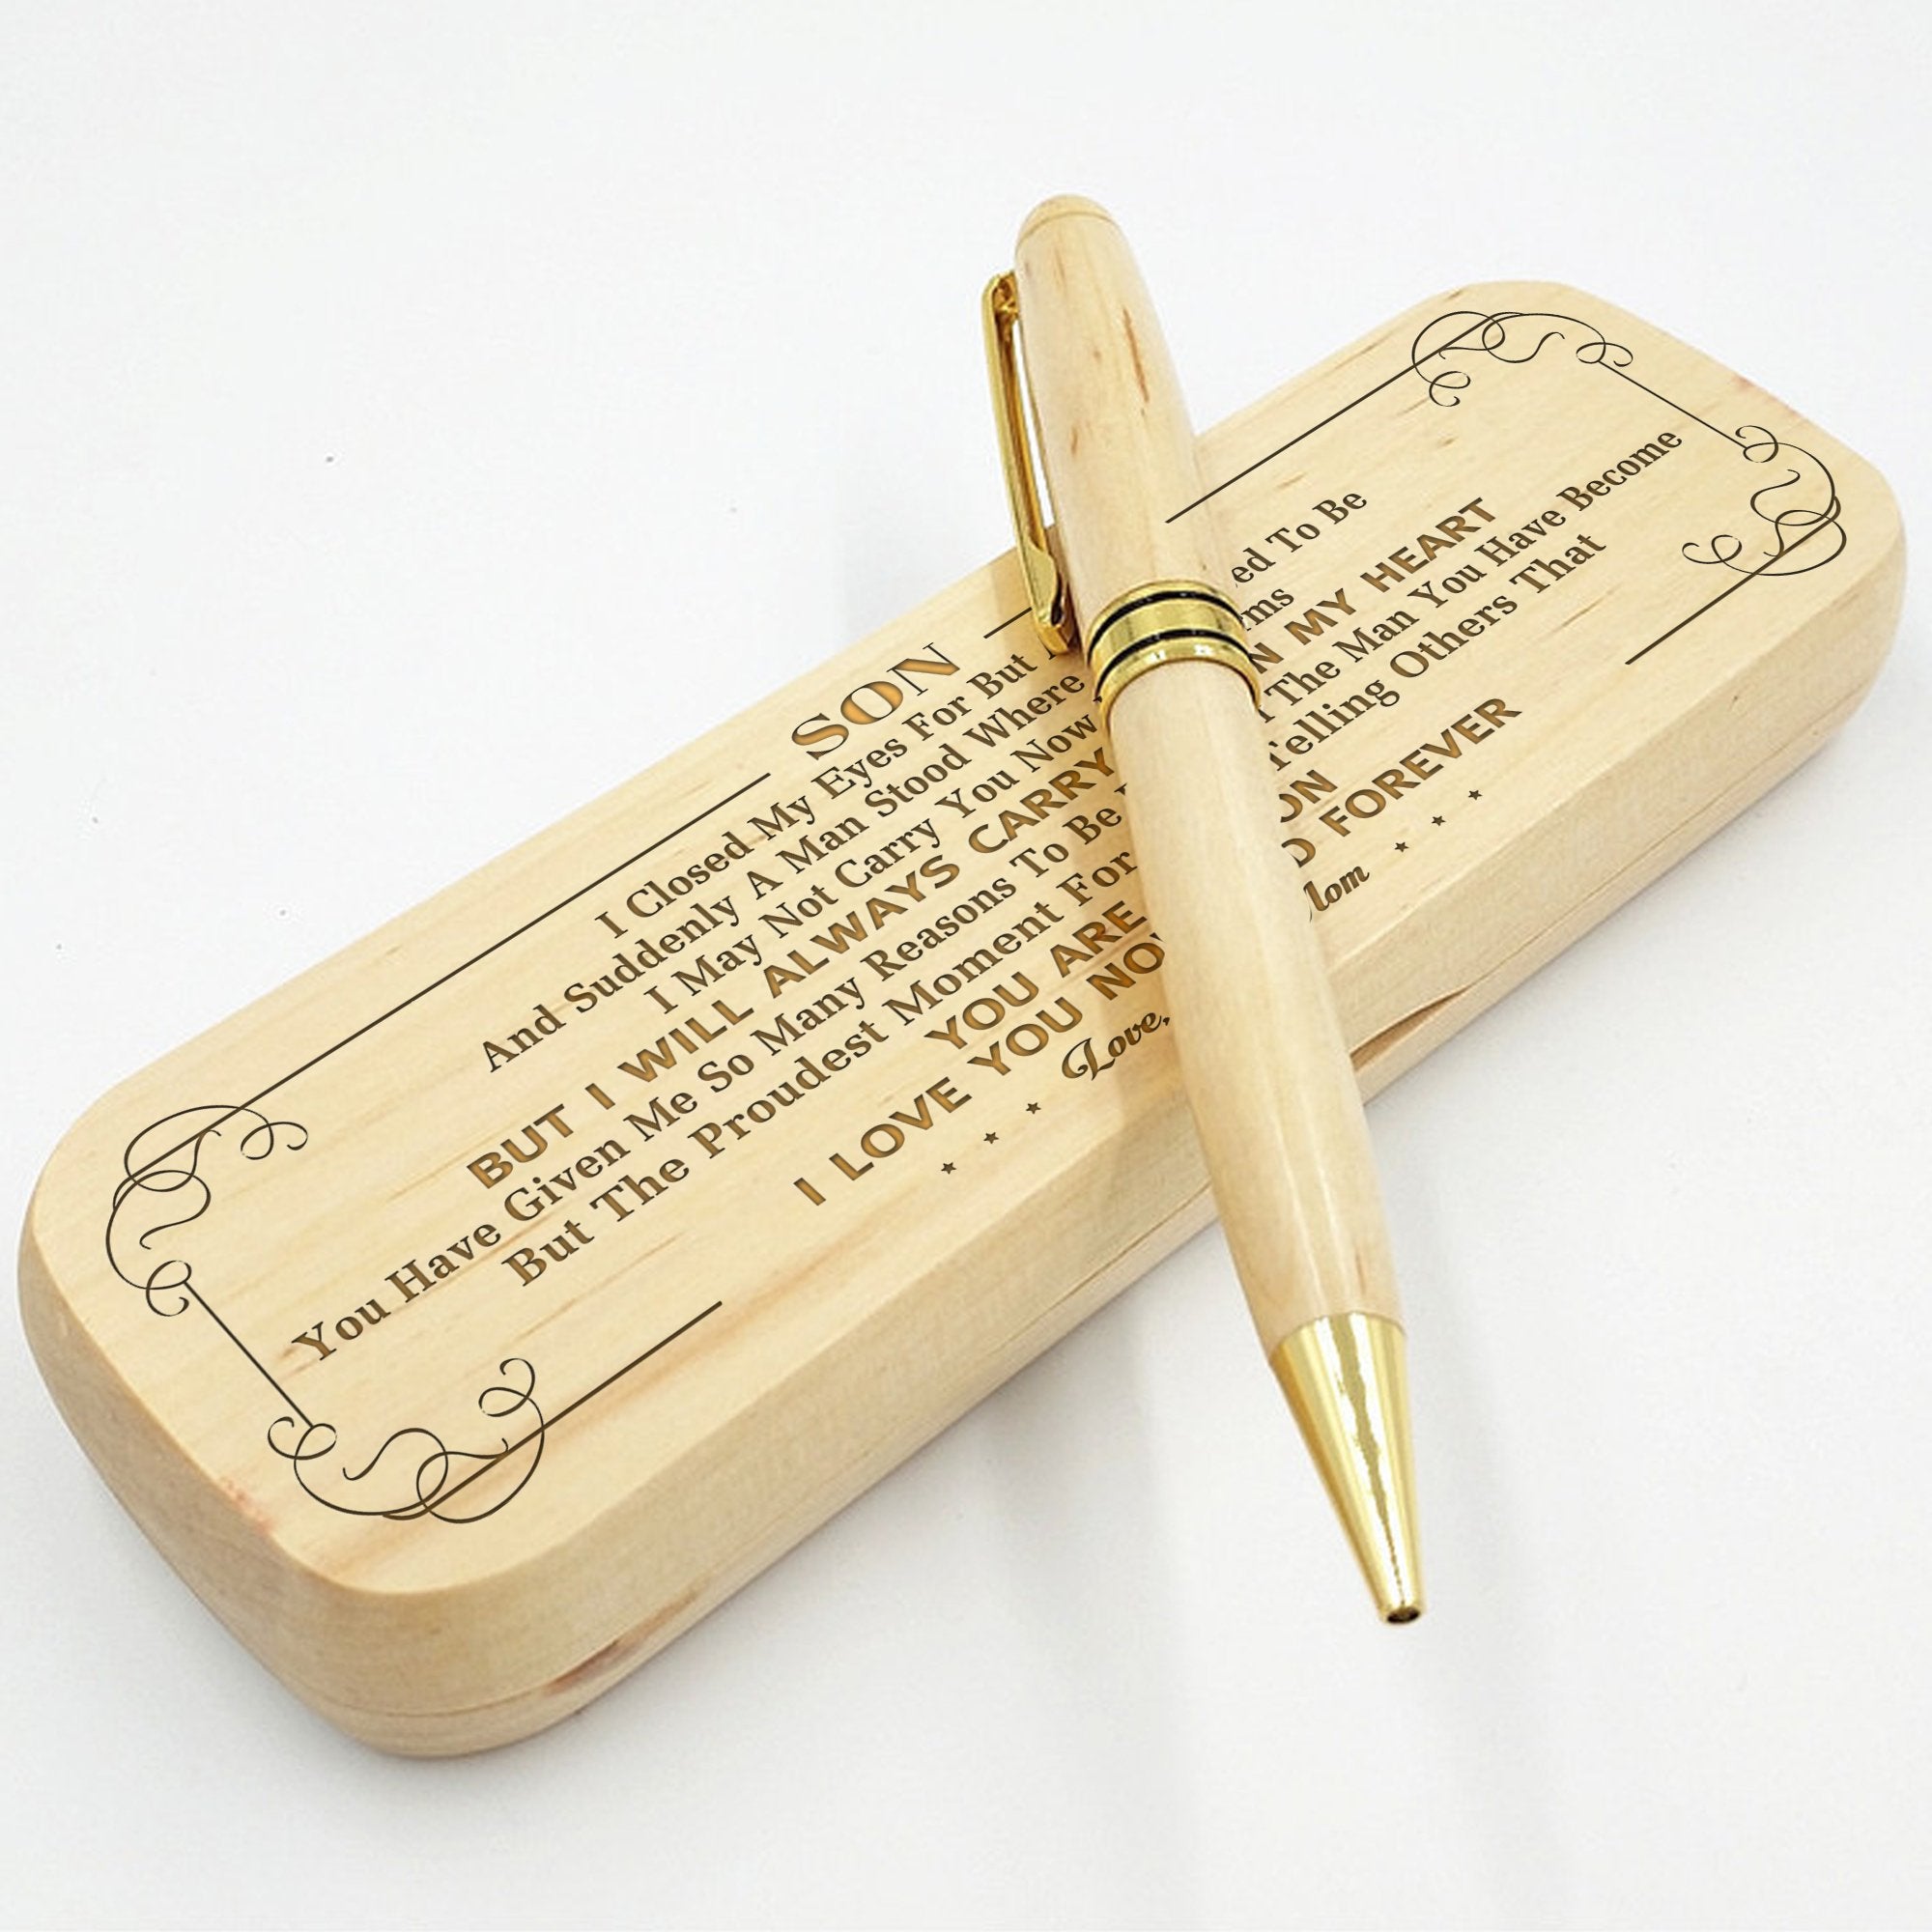 SON
I Closed My Eyes For But To Be
And Suddenly A Man Stood Where
I May Not Carry You Now
BUT I WILL ALWAYS CARRY MY HEART
You Have Given Me So Many Reasons To Be The Man You Have Become
But The Proudest Moment For Telling Others That
YOU ARE
I LOVE YOU FOREVER
Love,